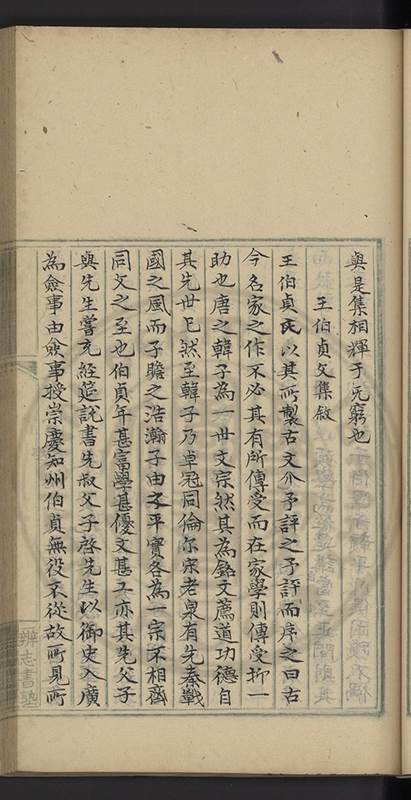 與是集相輝于无窮也
王伯貞文集敘
王伯貞氏以其所製古文介予評之予評而序之曰古
今名家之作不必其有所傳受而在家學則傳受抑一
助也唐之韓子為一世文宗然其為銘文薦道功德自
其先世已然至韓子乃卓冠同倫尓宋老泉有先秦戰
國之風而子瞻之浩瀚子由之平實各為一宗不相齊
同文之至也伯貞年甚富學甚優文甚工亦其先父子
與先生嘗充經筵說書先叔父子啓先生以御史入廣
為僉事由僉事授崇慶知州伯貞無役不從故所見所
辨志書塾